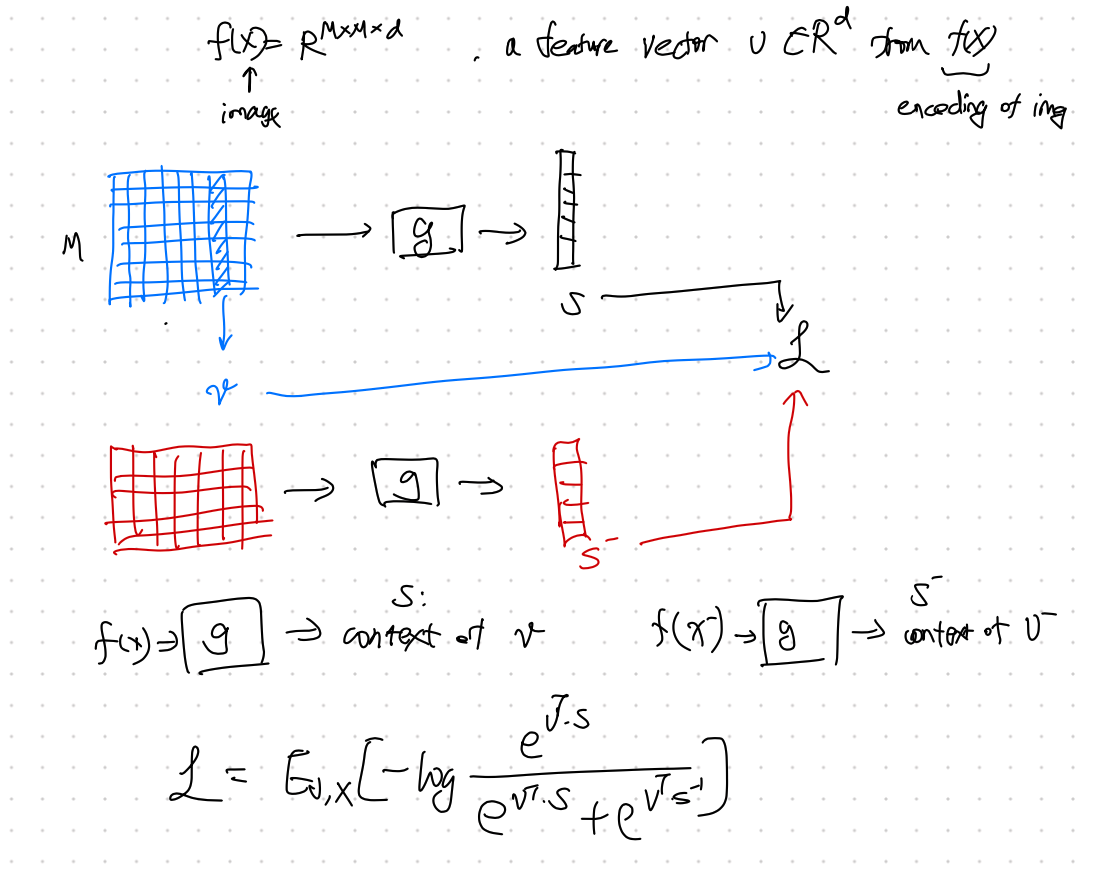 f(x) = R^{M×M×d} . a feature vector v ∈ R^d from f(x)
↑
image
encoding of img
M → g →
s
L
v
→ g →
s^-
s: s^-
f(x) → g → context of v f(x^-) → g → context of v^-
L = E_{v,x}[-log e^{v^T·s} / (e^{v^T·s} + e^{v^T·s^-})]